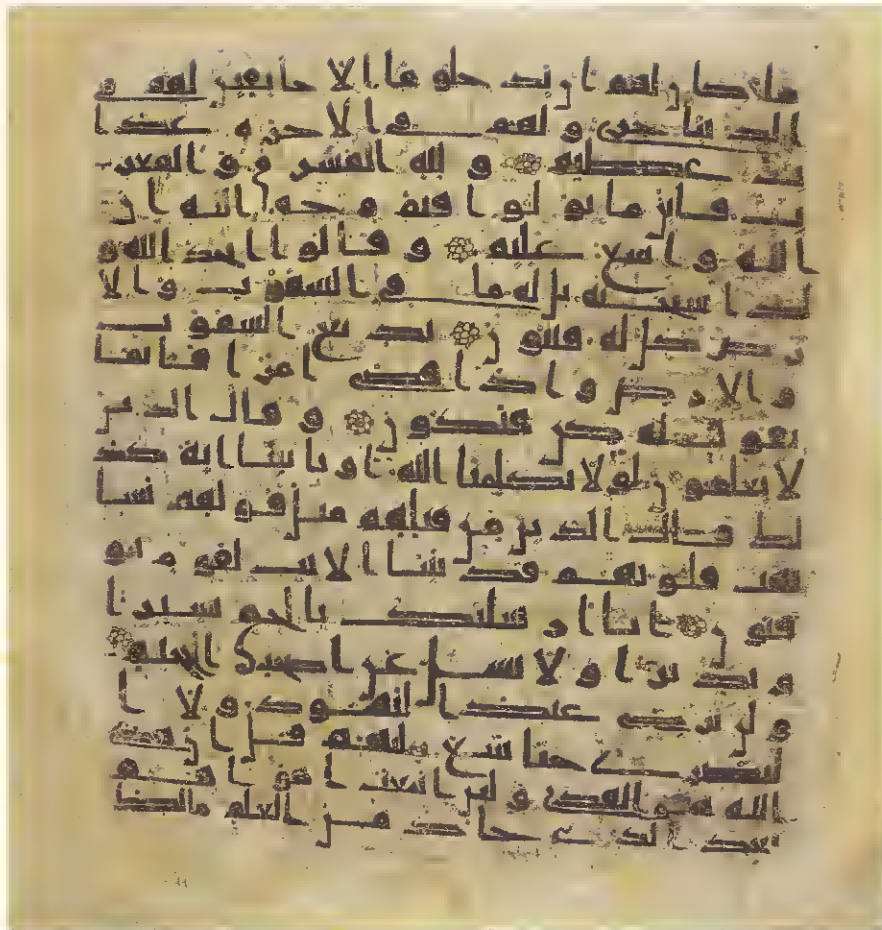 ما كان لهم ان يدخلوها الا خائفين لهم في
الدنيا خزي ولهم في الاخرة عذا
ب عظيم ولله المشرق والمغر
ب فاينما تولوا فثم وجه الله ان
الله واسع عليم وقالوا اتخذ الله و
لدا سبحنه بل له ما في السموت والا
رض كل له قنتون بديع السموت
والارض واذا قضى امرا فانما
يقول له كن فيكون وقال الذين
لا يعلمون لولا يكلمنا الله او تاتينا اية كذ
لك قال الذين من قبلهم مثل قولهم تشا
بهت قلوبهم قد بينا الايت لقوم يو
قنون انا ارسلنك بالحق بشيرا
ونذيرا ولا تسل عن اصحب الجحيم
ولن ترضى عنك اليهود ولا ا
لنصرى حتى تتبع ملتهم قل ان هدى
الله هو الهدى ولئن اتبعت اهواهم
بعد الذي جاك من العلم ما لك